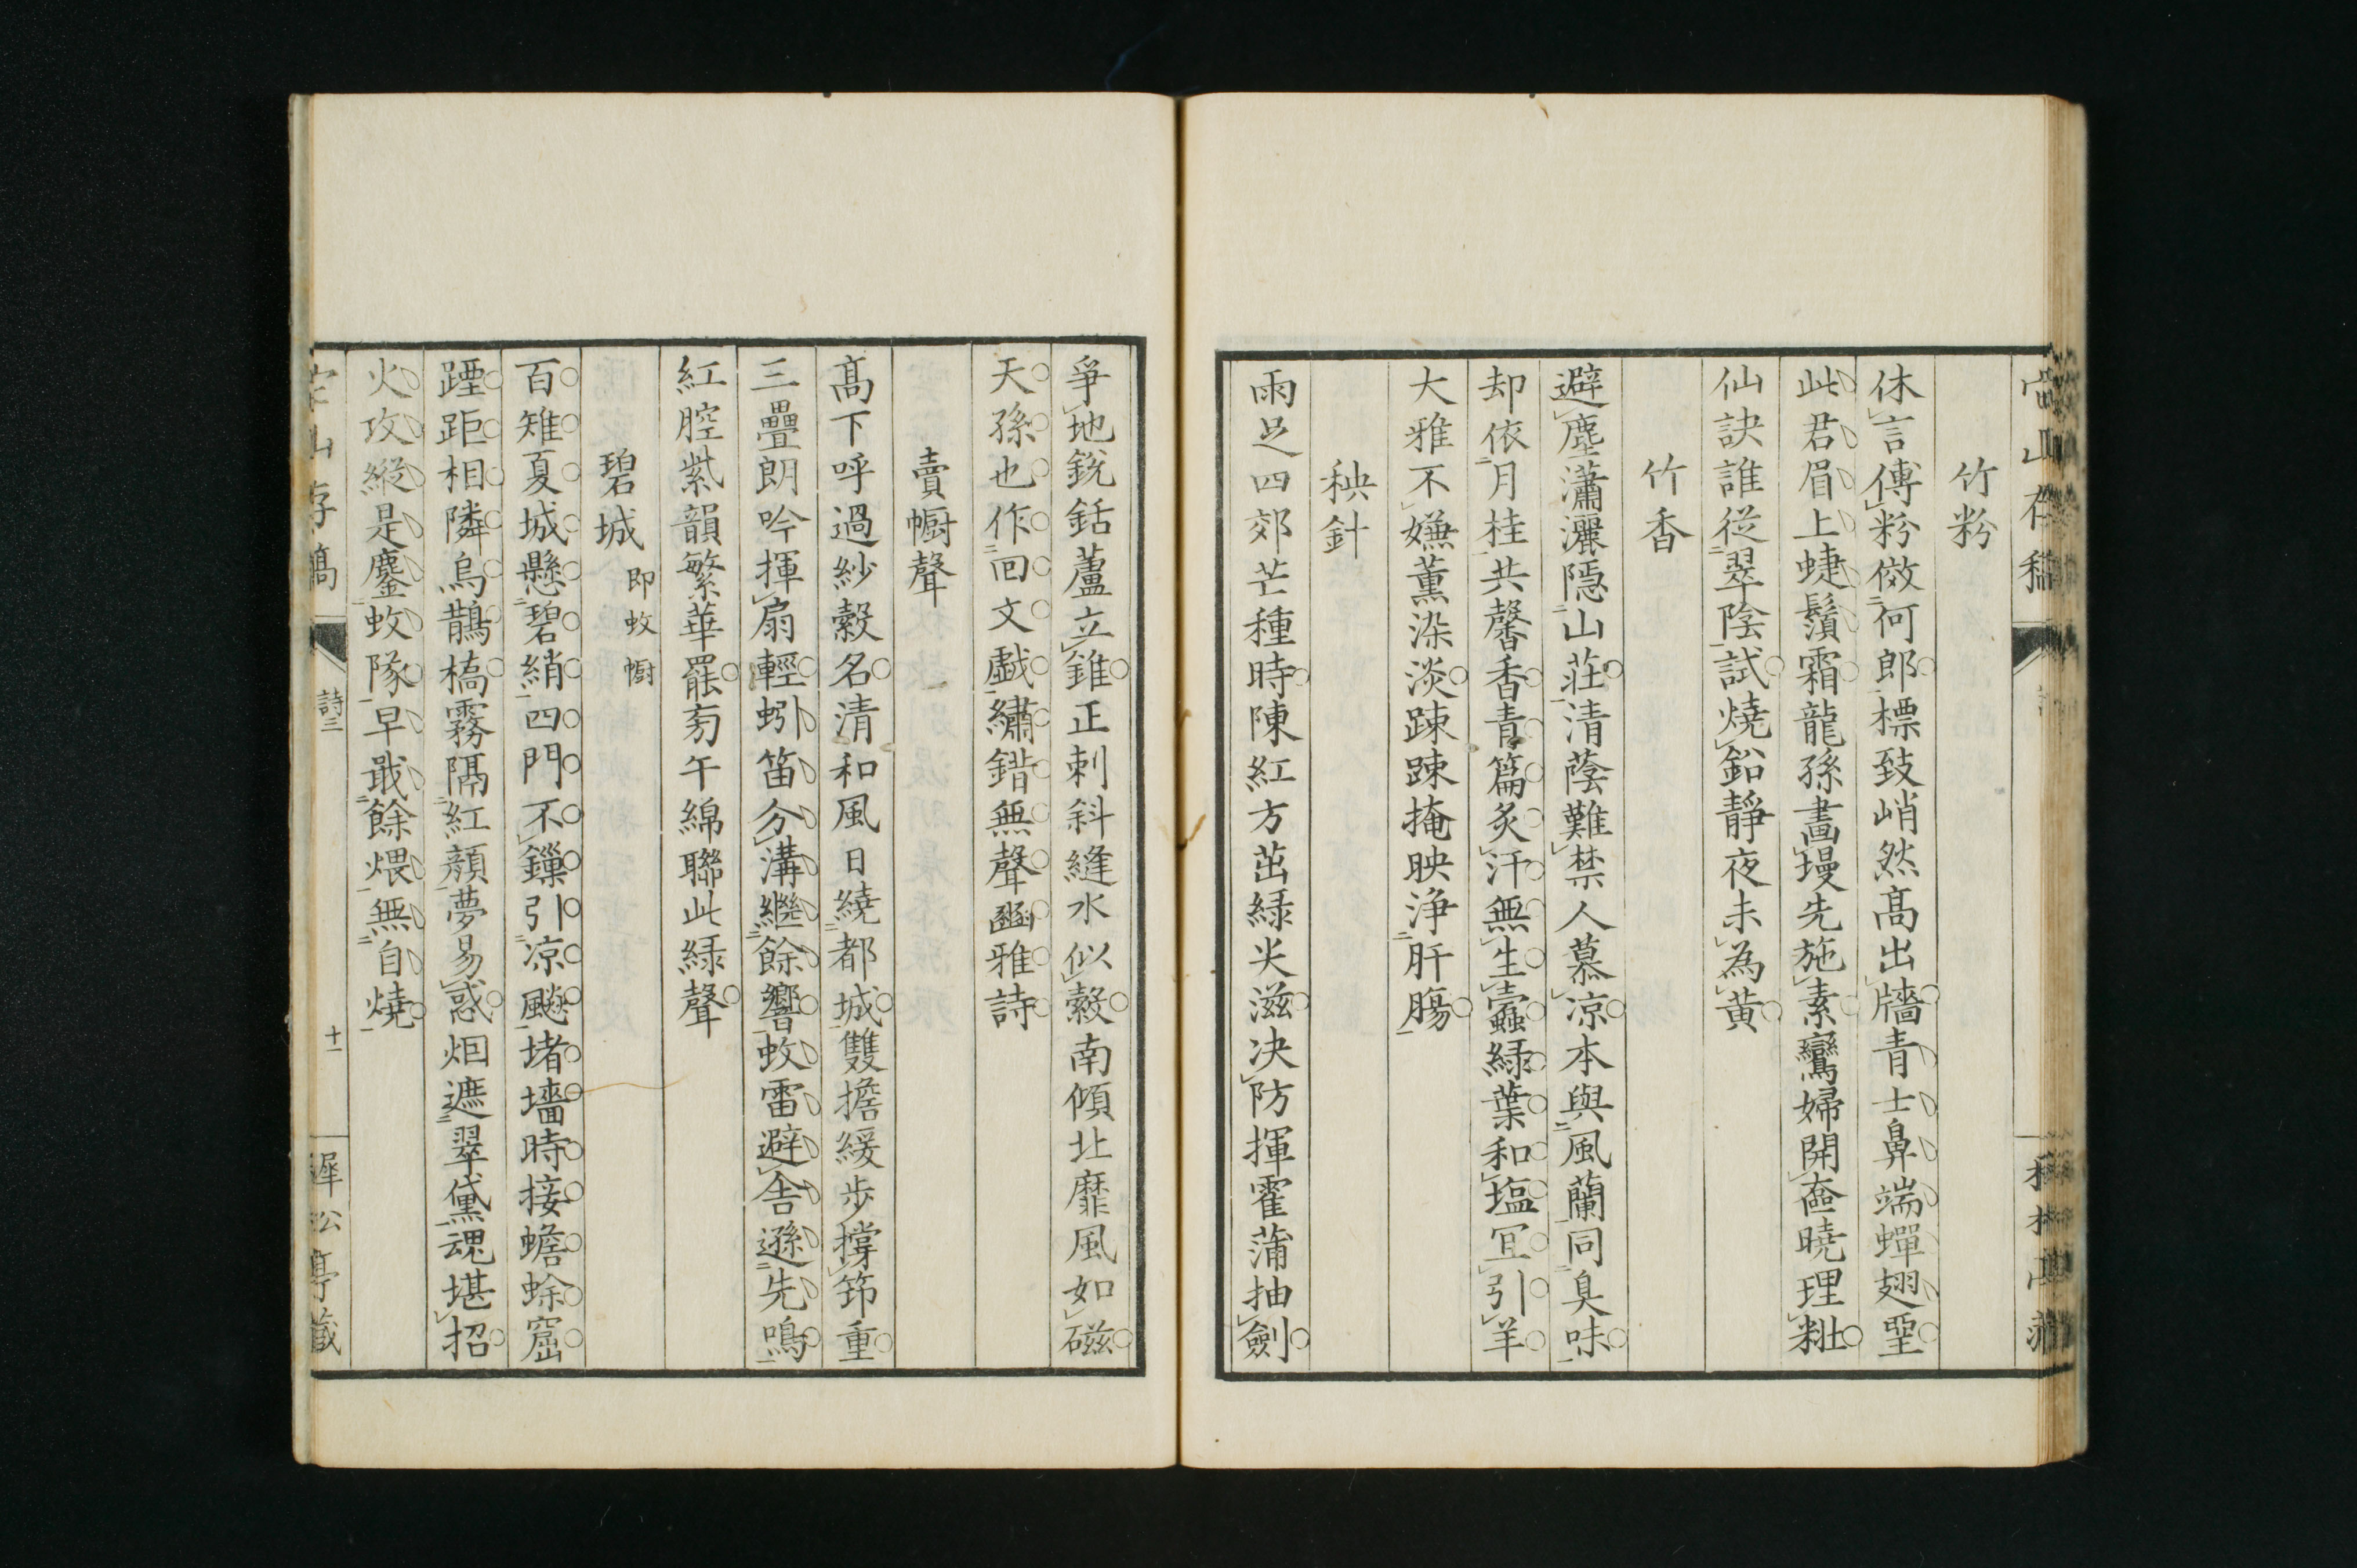 竹粉
休言傅粉傚何郎標致峭然高出牆青士鼻端蟬翅堊
此君眉上蜨鬚霜龍孫畵墁先施素鸞婦開奩曉理粧
仙訣誰從翠陰試燒鉛靜夜未為黄
竹香
避塵瀟灑隠山莊清蔭難禁人慕凉本與風蘭同臭味
却依月桂共馨香青篇炙汗無生蠧緑葉和塩冝引羊
大雅不嫌薫染淡踈踈掩映浄肝腸
秧針
雨足四郊芒種時陳紅方茁緑尖滋决防揮霍蒲抽劍
爭地銳銛蘆立錐正刺斜縫水似縠南傾北靡風如磁
天孫也作囘文戯繡錯無聲豳雅詩
賣㡡聲
髙下呼過紗縠名清和風日繞都城雙擔緩步撐筇重
三疊朗吟揮扇輕蚓笛分溝繼餘響蚊雷避舎遜先鳴
紅腔紫韻繁華罷芴午綿聯此緑聲
碧城 即蚊㡡
百雉夏城懸碧綃四門不鏁引凉飈堵墻時接蟾蜍窟
躔距相隣烏鵲橋霧隔紅顔夢易惑烟遮翠黛魂堪招
火攻縱是鏖蚊隊早戢餘煨無自燒
山存
詩二
十一
遲松亭藏